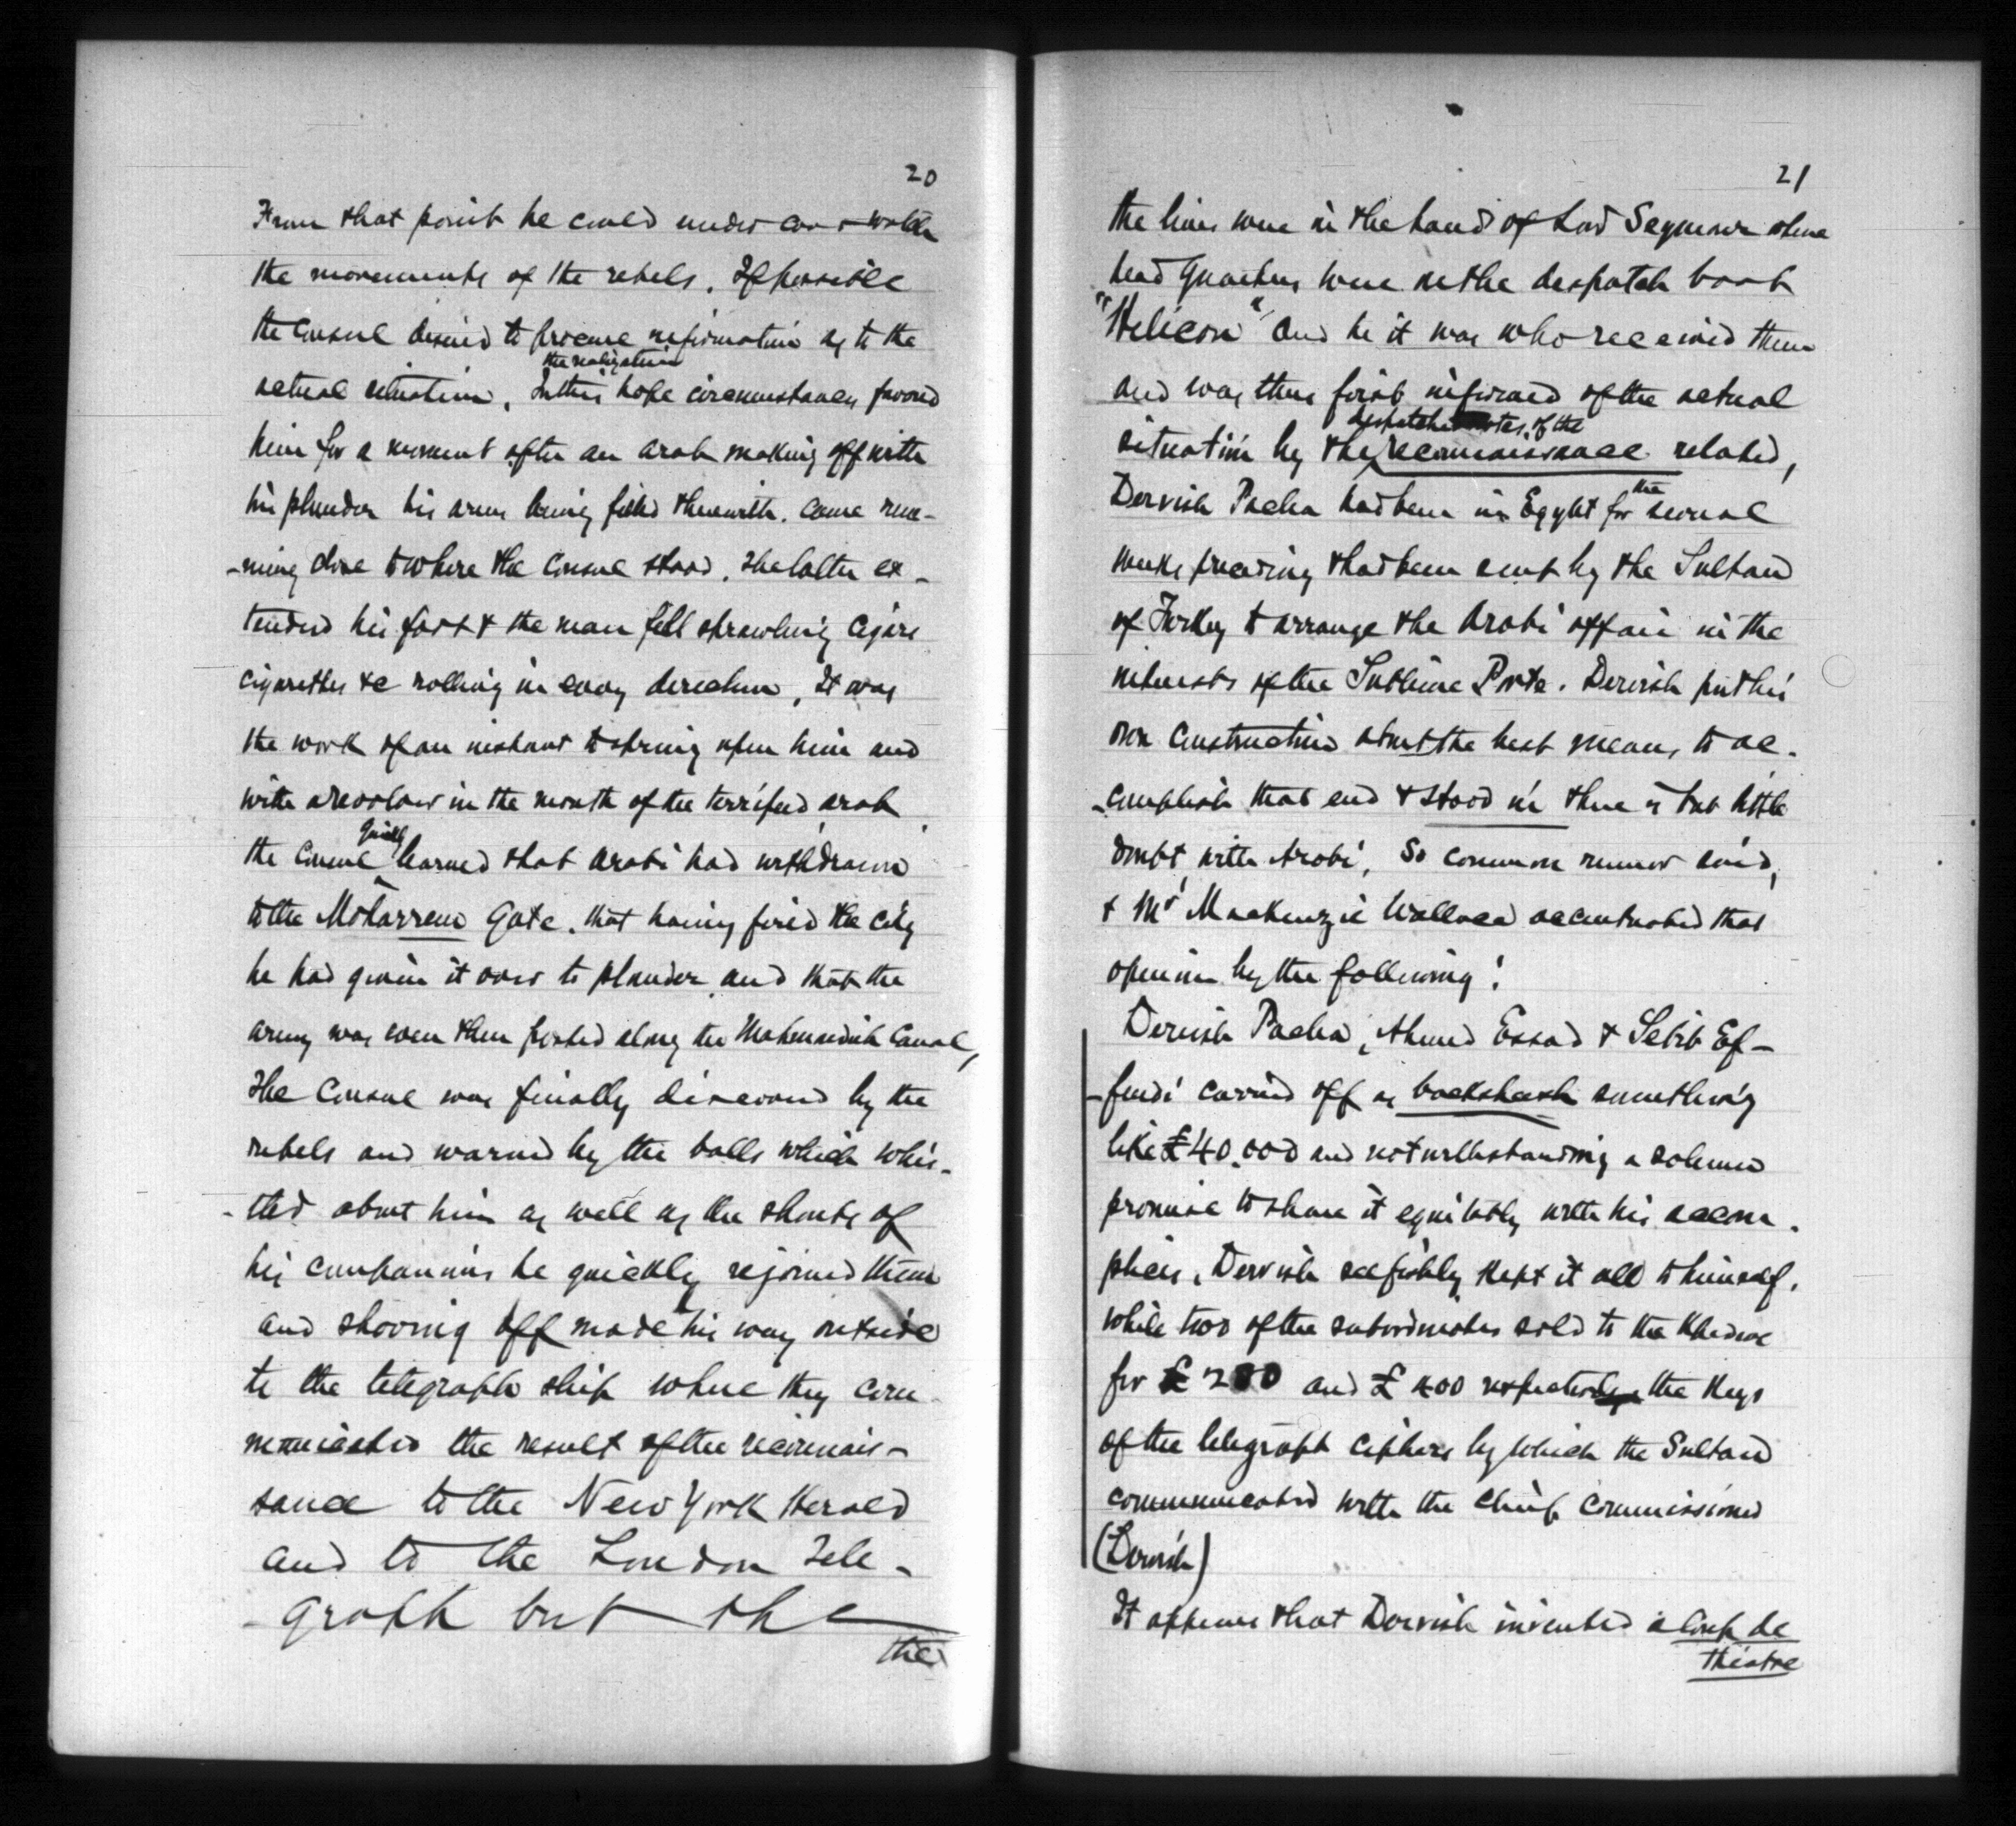 20
From that point he could under cover watch
the movements of the rebels. If possible
the Consul desired to procure information as to the
the realization
actual situation. In this hope circumstances favored
him for a moment after an arab making off with
his plunder his arms being filled therewith. Came run-
-ning close to where the Consul stood. The latter ex-
tended his foot & the man fell sprawling cigars
cigarettes &c rolling in every direction, It was
the work of an instant to spring upon him and
with a revolver in the mouth of the terrified arab
quickly
the Consul learned that Arabi had withdrawn
to the Moharrem Gate. that having fired the city
he had given it over to plunder and that the
army was even then posted along the Mahmoudieh Canal,
The Consul was finally discovered by the
rebels and warned by the balls which whis-
-tled about him as well as the shouts of
his companions he quickly rejoined them
and shoving off made his way outside
to the telegraph ship where they com-
municated the result of the reconnais-
sance to the New York Herald
and to the London Tele-
-graph but the
the
21
the lines were in the hand of Lord Seymour whose
head quarters were on the despatch boat
"Helicon" and he it was who received them
and was thus first informed of the actual
despatched notes of the
situation by the reconnaissance related,
the
Dervish Pacha had been in Egypt for several
weeks preceding & had been sent by the Sultan
of Turkey to arrange the Arabi affair in the
interests of the Sublime Porte. Dervish put his
own construction about the best means to ac-
-complish that end & stood in there is but little
doubt, with Arabi, So common rumor said,
& Mr Mackenzie Wallace accentuated that
opinion by the following:
Dervish Pacha, Ahmed Essad & Lebib Ef-
-fendi carried off as backsheesh something
like £40.000 and notwithstanding a solemn
promise to share it equitably with his accom-
plices, Dervish selfishly kept it all to himself.
while two of the subordinates sold to the Khedive
for £200 and £400 respectively the Keys
of the telegraph ciphers by which the Sultan
communicated with the Chief Commissioner
(Dervish)
It appears that Dervish invented a coup de
théatre